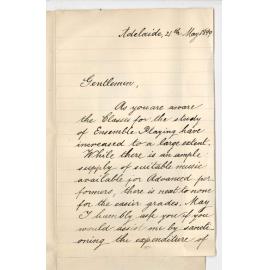 Adelaide, 21st May 1890
Gentlemen,
As you are aware
the Classes for the study
of Ensemble Playing have
increased to a large extent.
While there is an ample
supply of suitable music
available for Advanced per-
formers, there is next to none
for the easier grades. May
I humbly ask you if you
would assist me by sanc-
tioning the expenditure of